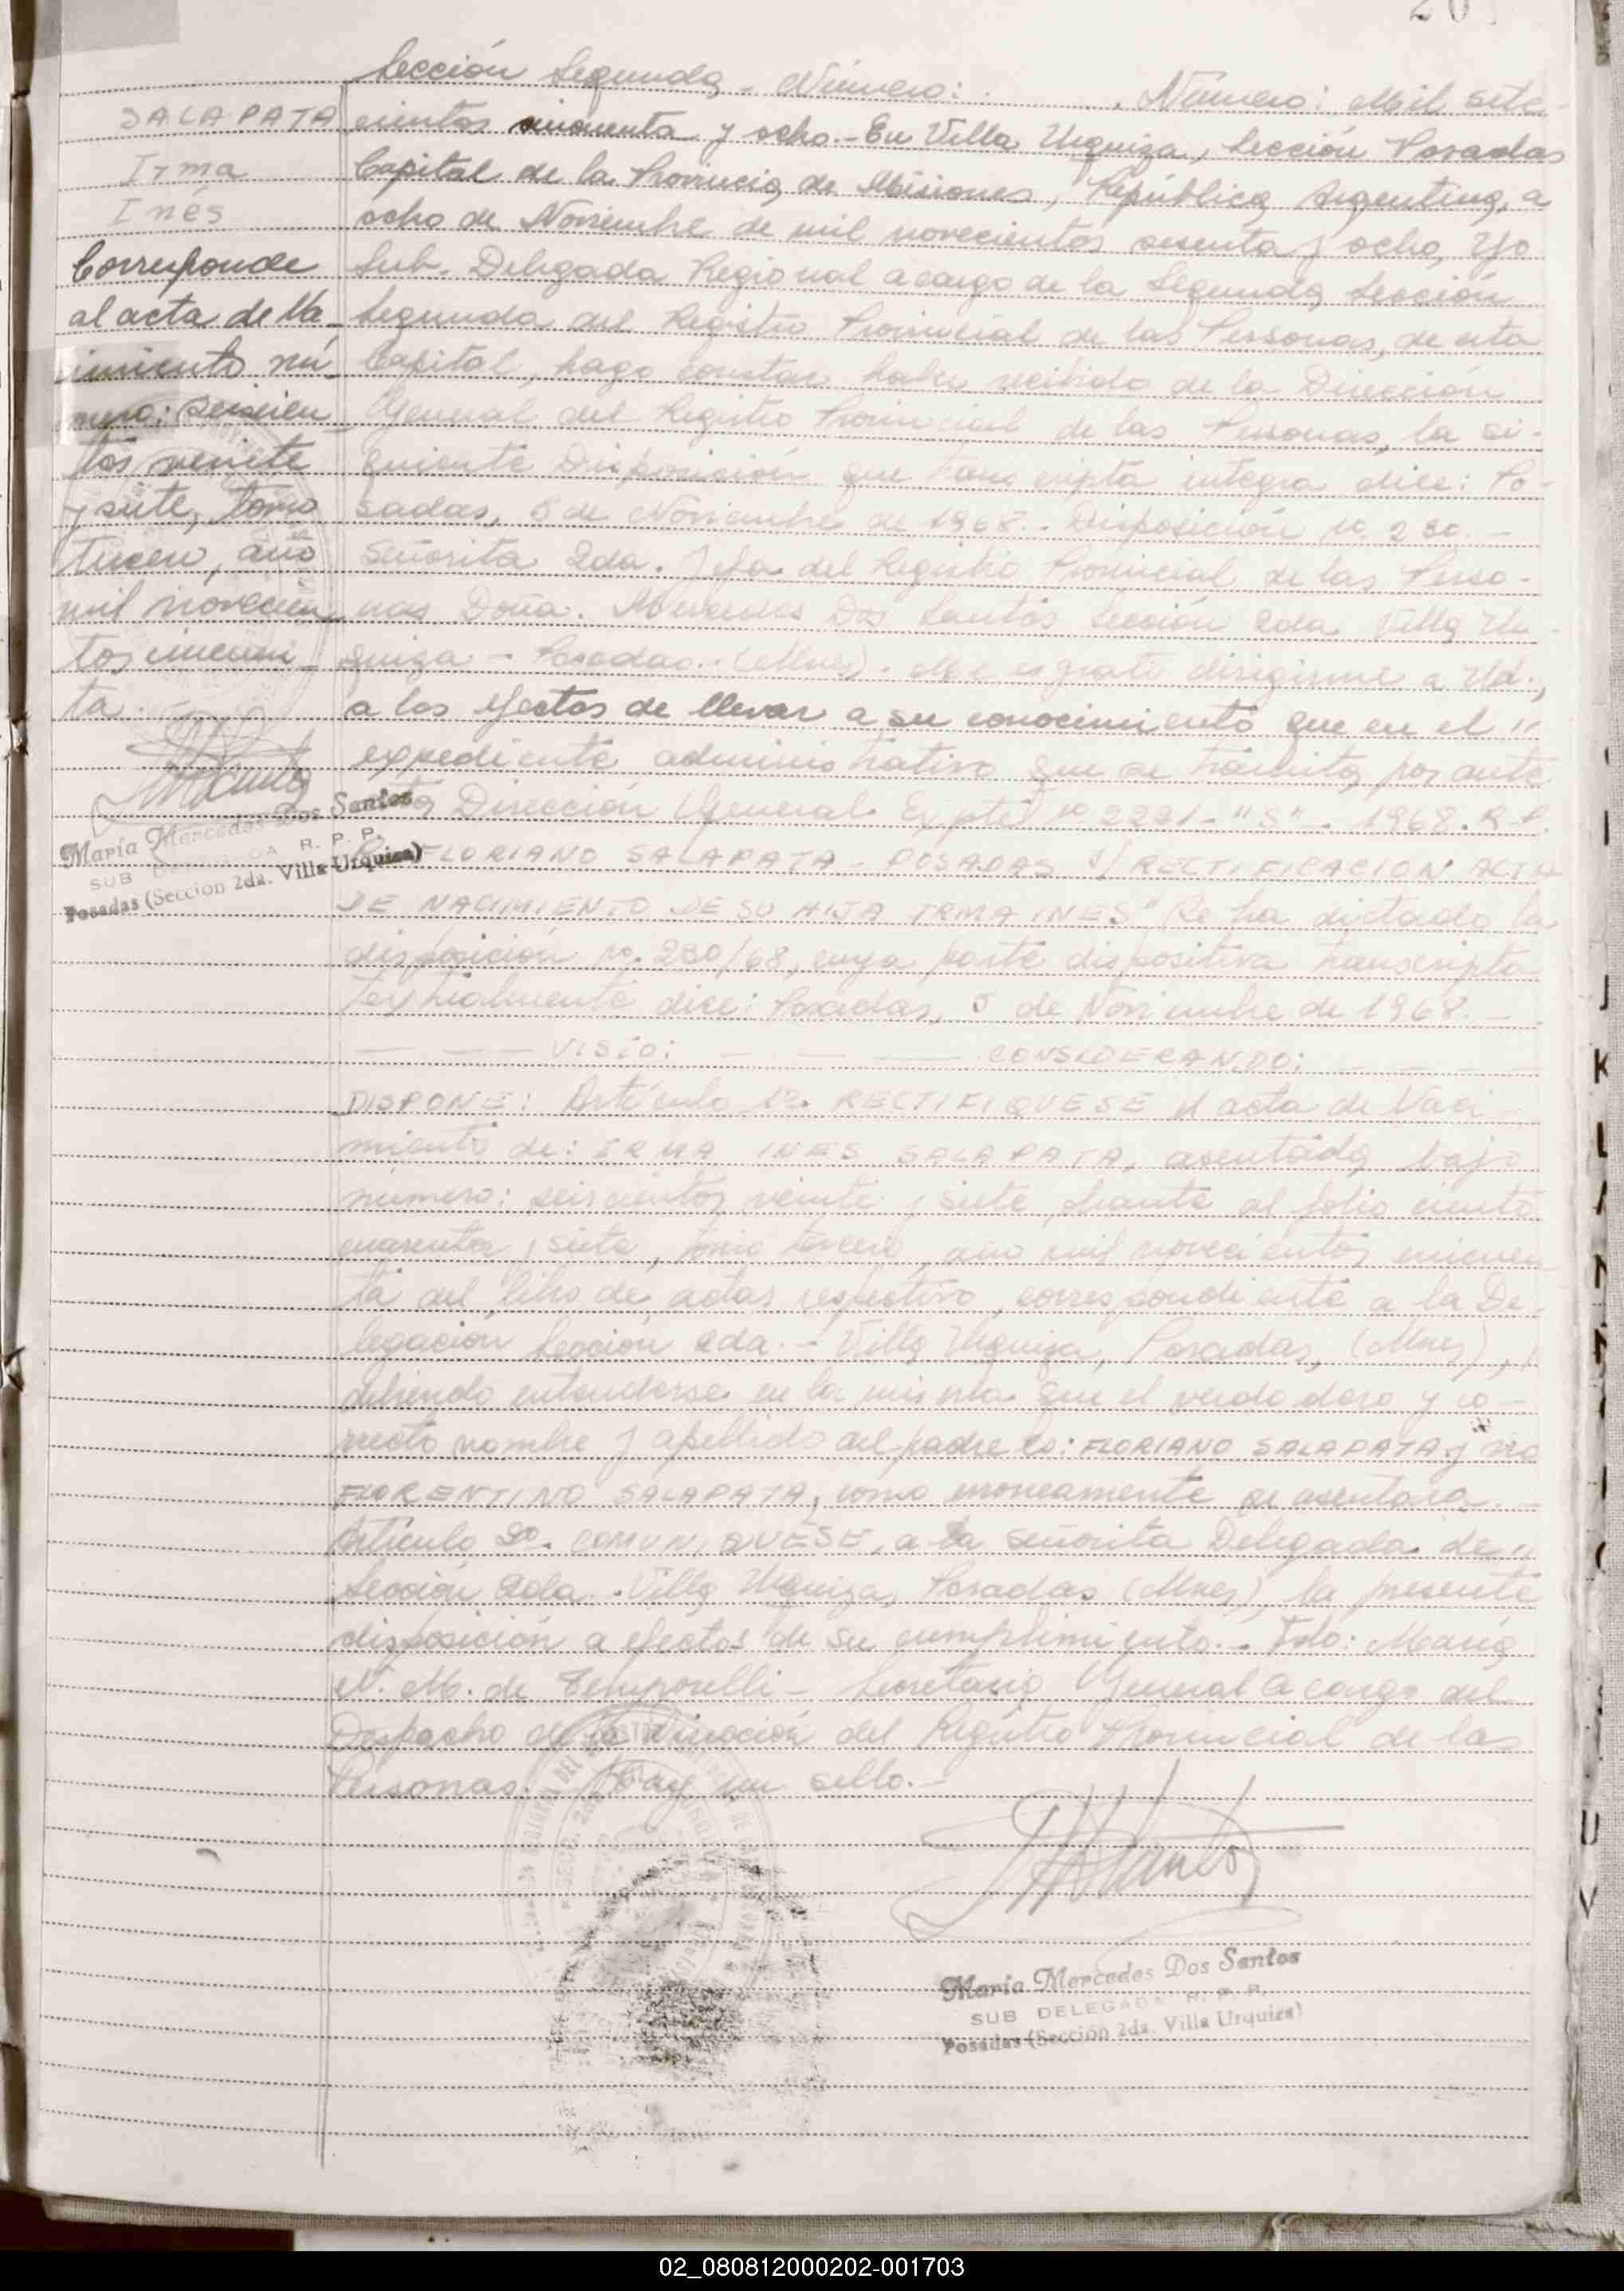 Sección Segunda - Número: . Número: Mil sete-
cientos cincuenta y ocho.- En Villa Urquiza, Sección Posadas
Capital de la Provincia de Misiones, República Argentina, a
ocho de Noviembre de mil novecientos sesenta y ocho, Yo
Sub. Delegada Regional a cargo de la Segunda Sección
Segunda del Registro Provincial de las Personas, de esta
Capital, hago constar haber recibido de la Dirección
General del Registro Provincial de las Personas, la si-
guiente Disposición que transcripta integra dice: Po-
sadas, 5 de Noviembre de 1968.- Disposición no. 230.-
Señorita 2da. Jefa del Registro Provincial de las Perso-
nas Doña. Mercedes Dos Santos Sección 2da Villa Ur-
quiza - Posadas.- (Mnes).- Me es grato dirigirme a Ud.,
a los efectos de llevar a su conocimiento que en el "
expediente administrativo que se tramita por ante
Dirección General Expte no 2291-"S"-1968.R.P.
FLORIANO SALAPATA - POSADAS S/RECTIFICACION ACTA
DE NACIMIENTO DE SU HIJA IRMA INES" Se ha dictado la
disposición no. 230/68, cuya parte dispositiva transcripta
textualmente dice: Posadas, 5 de Noviembre de 1968.-
VISTO: CONSIDERANDO:
DISPONE: Artículo 1º. RECTIFIQUESE el acta de Naci-
miento de: IRMA INES SALAPATA, asentada bajo
número: seiscientos veinte y siete, obrante al folio ciento
cuarenta y siete, tomo tercero, año mil novecientos cincuen
ta del libro de actas respectivo, correspondiente a la De-
legación Sección 2da.- Villa Urquiza, Posadas, (Mnes),
debiendo entenderse en la misma que el verdadero y co-
rrecto nombre y apellido del padre es: FLORIANO SALAPATA y no
FLORENTINO SALAPATA, como erroneamente se asentara.-
Artículo 2º. COMUNIQUESE, a la señorita Delegada de "
Sección 2da.- Villa Urquiza, Posadas (Mnes), la presente
disposición a efectos de su cumplimiento.- Fdo: María
N. M. de Temporelli - Secretaria General a cargo del
Despacho de la Dirección del Registro Provincial de las
Personas. Hay un sello.-
SALAPATA
Irma
Inés
Corresponde
al acta de Na-
cimiento nú-
mero: seiscien-
tos veinte
y siete, tomo
tercero, año
mil novecien-
tos cincuen-
ta.
María Mercedes Dos Santos
SUB DELEGADA R. P. P.
Posadas (Sección 2da. Villa Urquiza)
María Mercedes Dos Santos
SUB DELEGADA R. P. P.
Posadas (Sección 2da. Villa Urquiza)
J
K
L
U
V
02_080812000202-001703